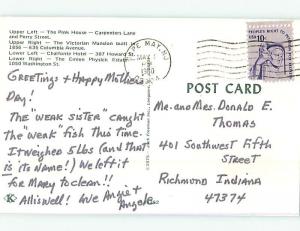 Upper Left — The Pink House — Carpenters Lane
and Perry Street.
Upper Right — The Victorian Mansion built in
1856 — 635 Columbia Avenue.
Lower Left — Chalfonte Hotel — 307 Howard St.
Lower Right — The Emlen Physick Estate
1050 Washington St.
CAPE MAY, NJ
MAY
PM
1980
PEOPLE'S RIGHT TO
USA 10c
Greetings + Happy Mothers
Day!
The "weak sister" caught
the "weak" fish this time.
It weighed 5 lbs (and that
is its name!) We left it
for Mary to clean!!
All is well! Love Angie +
Angelo
K
POST CARD
Mr. and Mrs. Donald E.
Thomas
401 Southwest Fifth
Street
Richmond Indiana
47374